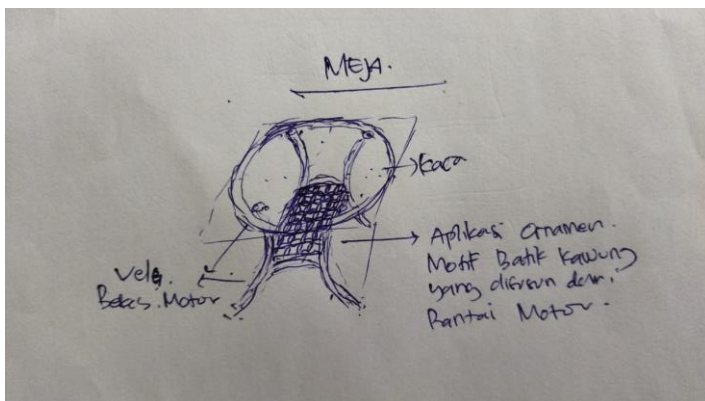 MEJA.
Kaca
Aplikasi Ornamen.
Motif Batik Kawung
yang disusun dari
Rantai Motor.
Velg.
Bekas Motor